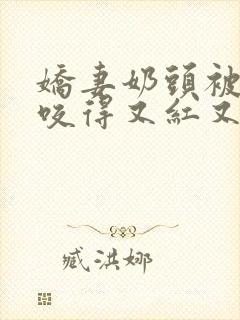 嬌妻奶頭被
咬得又紅又
臧洪娜